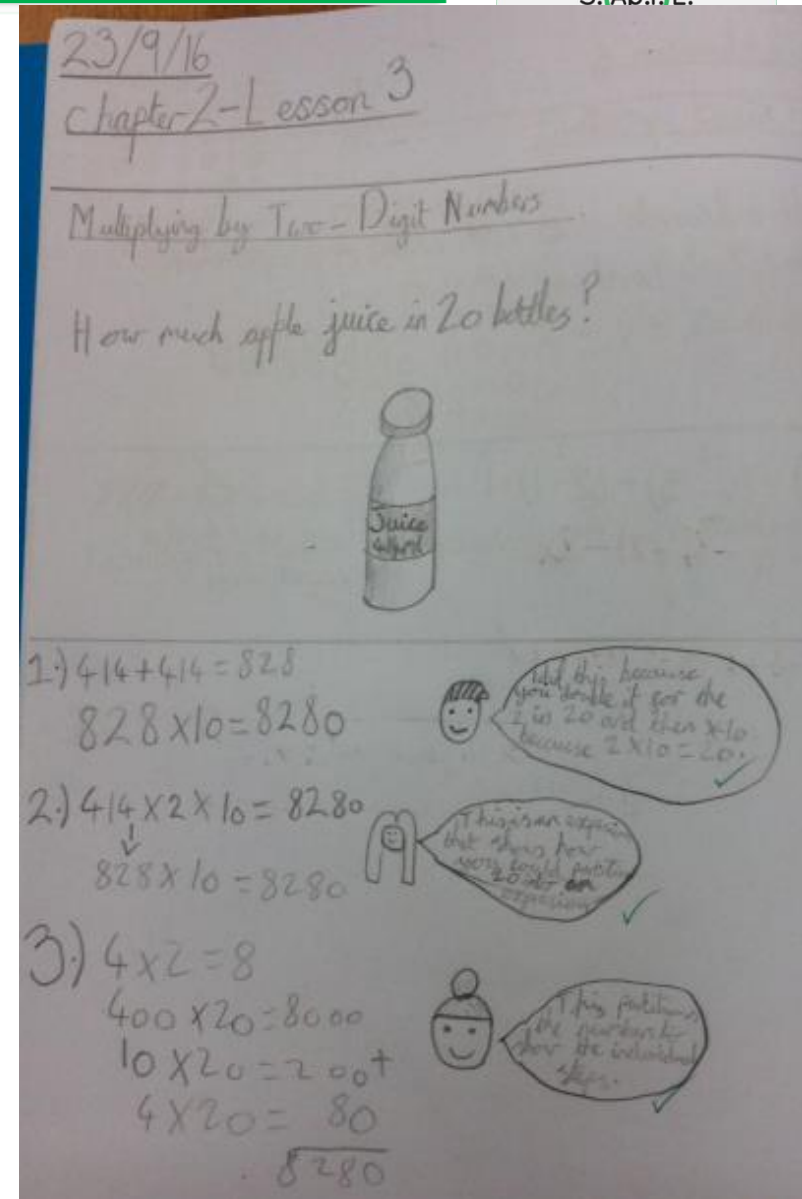 23/9/16
Chapter 2 - Lesson 3
Multiplying by Two-Digit Numbers
How much apple juice in 20 bottles?
Juice
414ml
1.) 414+414=828
828x10=8280
I did this because
you double it for the
2 in 20 and then x10
because 2x10=20.
2.) 414x2x10=8280
828x10=8280
This is an
that shows how
you could
20
3.) 4x2=8
400x20=8000
10x20=200+
4x20= 80
8280
This partitions
the number to
show the individual
steps.